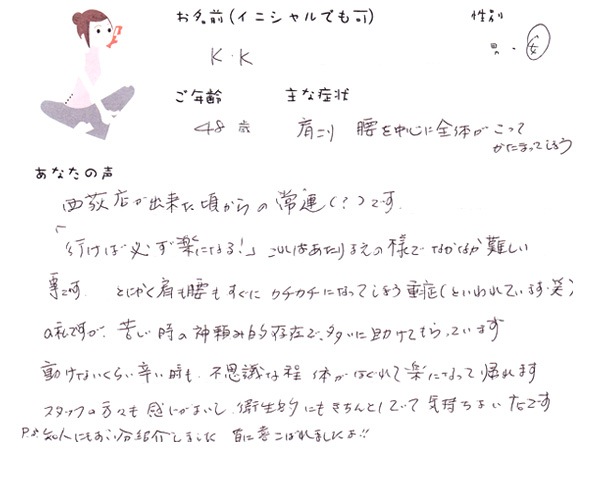 お名前(イニシャルでも可)
性別
K・K
男・女
ご年齢
主な症状
48歳
肩こり 腰を中心に全体がこって
かたまってしまう
あなたの声
西荻店が出来た頃からの常連(?)です。
「行けば必ず楽になる!」これはあたりまえの様でなかなか難しい
事です。 とにかく肩も腰もすぐにカチカチになってしまう重症(といわれています・笑)
の私ですが、苦しい時の神頼み的存在で、多いに助けてもらっています
動けないくらい辛い時も、不思議な程 体がほぐれて楽になって帰れます
スタッフの方々も感じがよいし、衛生的にもきちんとしていて気持ちよい店です
P.S. 知人にもずい分紹介しました 皆に喜こばれましたよ!!